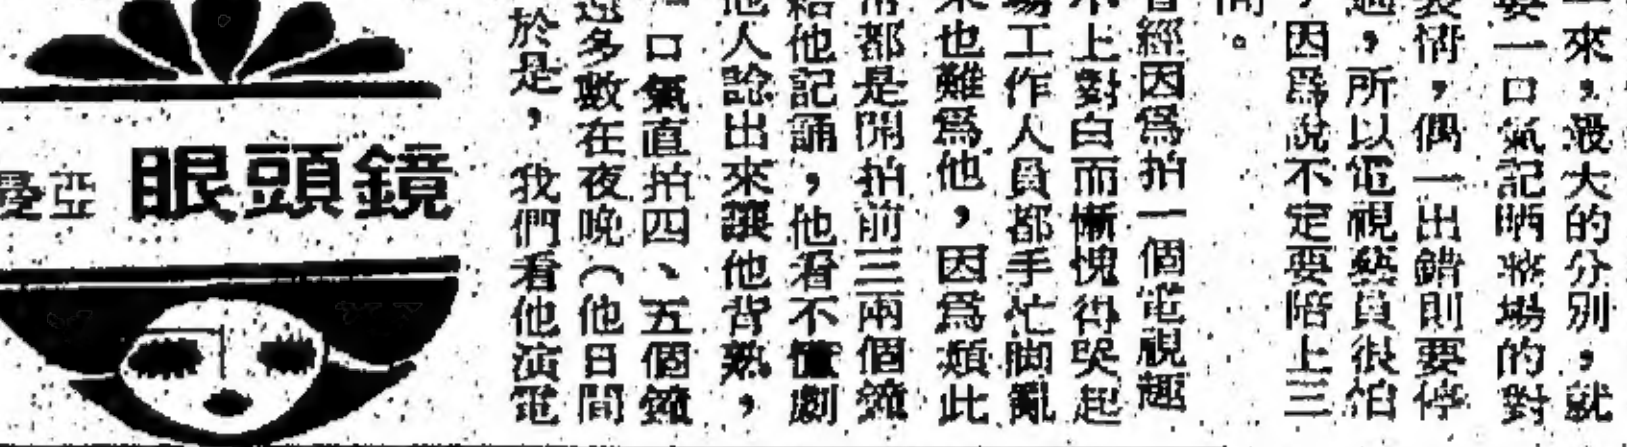 一來，最大的分別，就
要一口氣記晒整場的對
裝情，偶一出錯則要停
過，所以電視藝員很怕
，因爲說不定要陪上三
間。
曾經因爲拍一個電視趣
不上對白而慚愧得哭起
場工作人員都手忙脚亂
來也難爲他，因爲類此
常都是開拍前三兩個鐘
給他記誦，他看不懂劇
他人唸出來讓他背熟，
一口氣直拍四、五個鐘
還多數在夜晚（他日間
於是，我們看他演電
鏡頭眼
亞